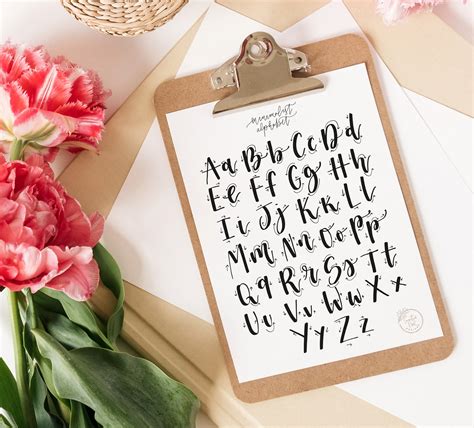 minimalist
alphabet
Aa Bb Cc Dd
Ee Ff Gg Hh
Ii Jj Kk Ll
Mm Nn Oo Pp
Qq Rr Ss Tt
Uu Vv Ww Xx
Yy Zz